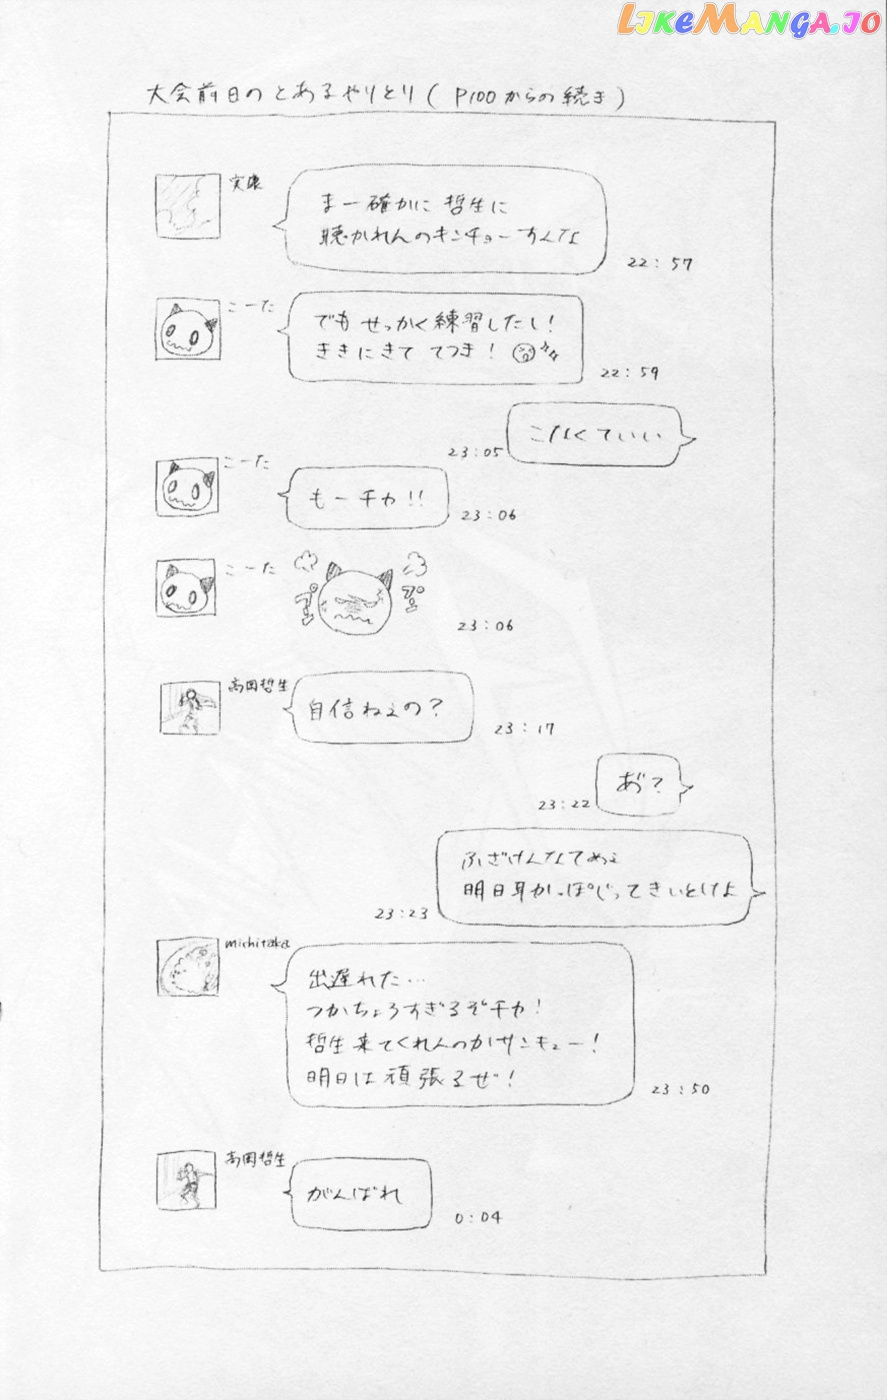 LIKEMANGA.IO
大会前日のとあるやりとり( P100からの続き)
実康
まー確かに 哲生に
聴かれんのキンチョーすんな
22:57
こーた
でも せっかく練習したし!
ききにきて てつき!
22:59
こなくていい
23:05
こーた
もーチカ!!
23:06
こーた
プン プン
23:06
高岡哲生
自信ねぇの?
23:17
あ゛?
23:22
ふざけんなてめぇ
明日耳かっぽじってきいとけよ
23:23
michitaka
出遅れた…
つかちょろすぎるぞチカ!
哲生来てくれんのかサンキュー!
明日は頑張るぜ!
23:50
高岡哲生
がんばれ
0:04